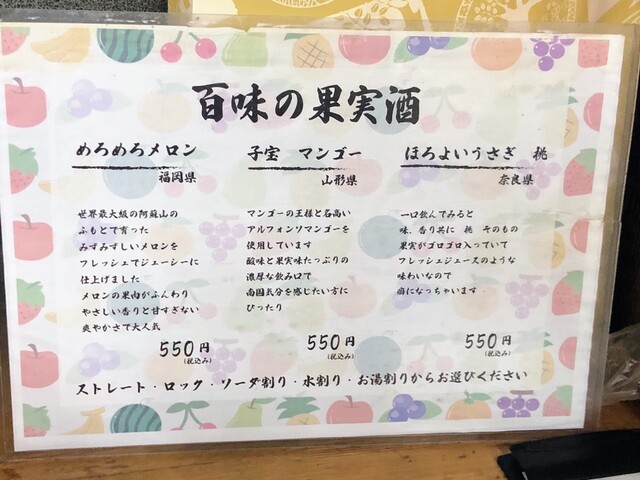 百味の果実酒
めろめろメロン
福岡県
世界最大級の阿蘇山の
ふもとで育った
みずみずしいメロンを
フレッシュでジューシーに
仕上げました
メロンの果肉がふんわり
やさしい香りと甘すぎない
爽やかさで大人気
550円
(税込み)
子宝 マンゴー
山形県
マンゴーの王様と名高い
アルフォンソマンゴーを
使用しています
酸味と果実味たっぷりの
濃厚な飲み口で
南国気分を感じたい方に
ぴったり
550円
(税込み)
ほろよいうさぎ 桃
奈良県
一口飲んでみると
味、香り共に 桃 そのもの
果実がゴロゴロ入っていて
フレッシュジュースのような
味わいなので
癖になっちゃいます
550円
(税込み)
ストレート・ロック・ソーダ割り・水割り・お湯割りからお選びください